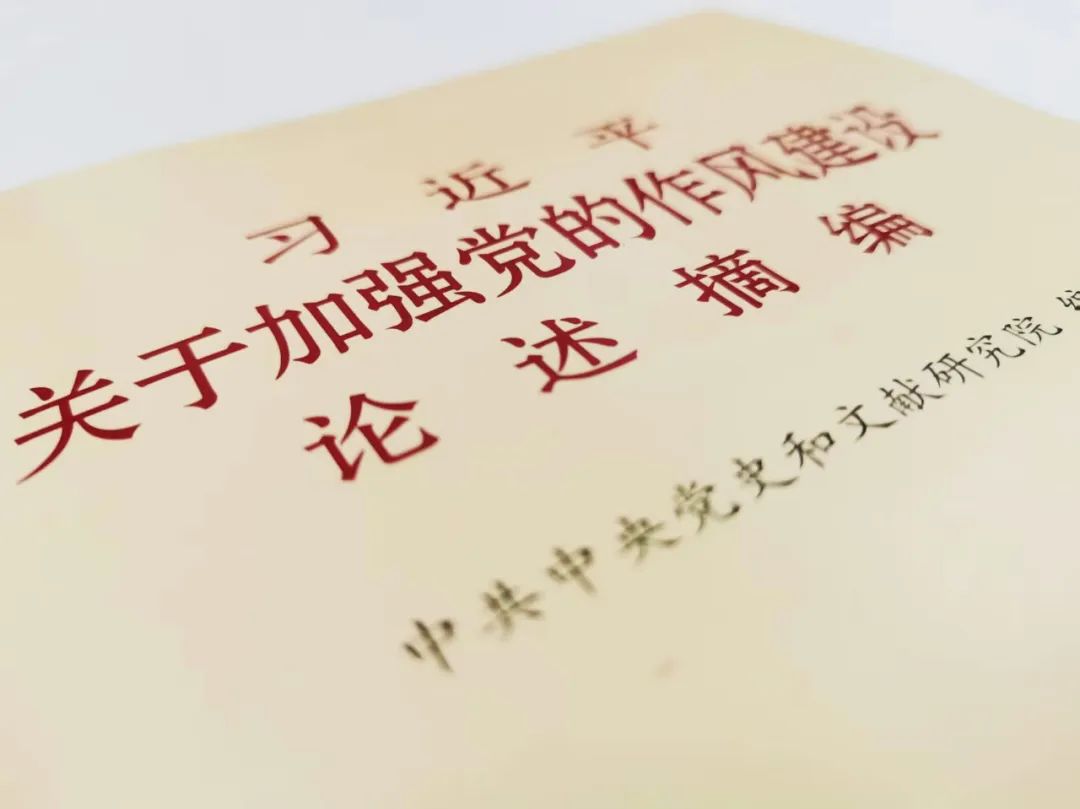 习近平
关于加强党的作风建设
论述摘编
中共中央党史和文献研究院 编